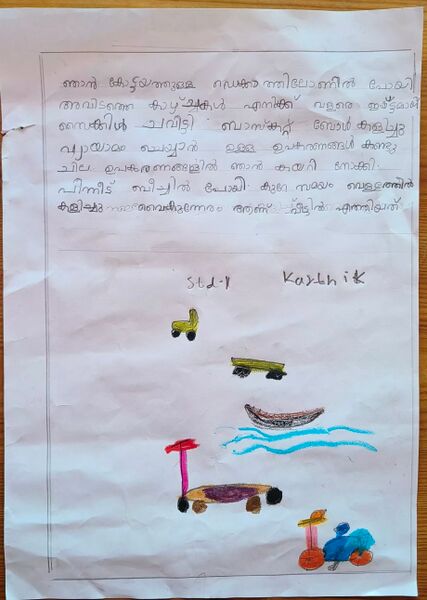 ഞാൻ കോട്ടയത്തുള്ള ഡെക്കാത്തിലോണിൽ പോയി
അവിടത്തെ കാഴ്ചകൾ എനിക്ക് വളരെ ഇഷ്ട്ടമായി
സൈക്കിൾ ചവിട്ടി ബാസ്കറ്റ് ബോൾ കളിച്ചു
വ്യായാമം ചെയ്യാൻ ഉള്ള ഉപകരണങ്ങൾ കണ്ടു
ചില ഉപകരണങ്ങളിൽ ഞാൻ കയറി നോക്കി.
പിന്നീട് ബീച്ചിൽ പോയി കുറേ സമയം വെള്ളത്തിൽ
കളിച്ചു വൈകുന്നേരം ആണ് വീട്ടിൽ എത്തിയത്
Std-1 Karthik